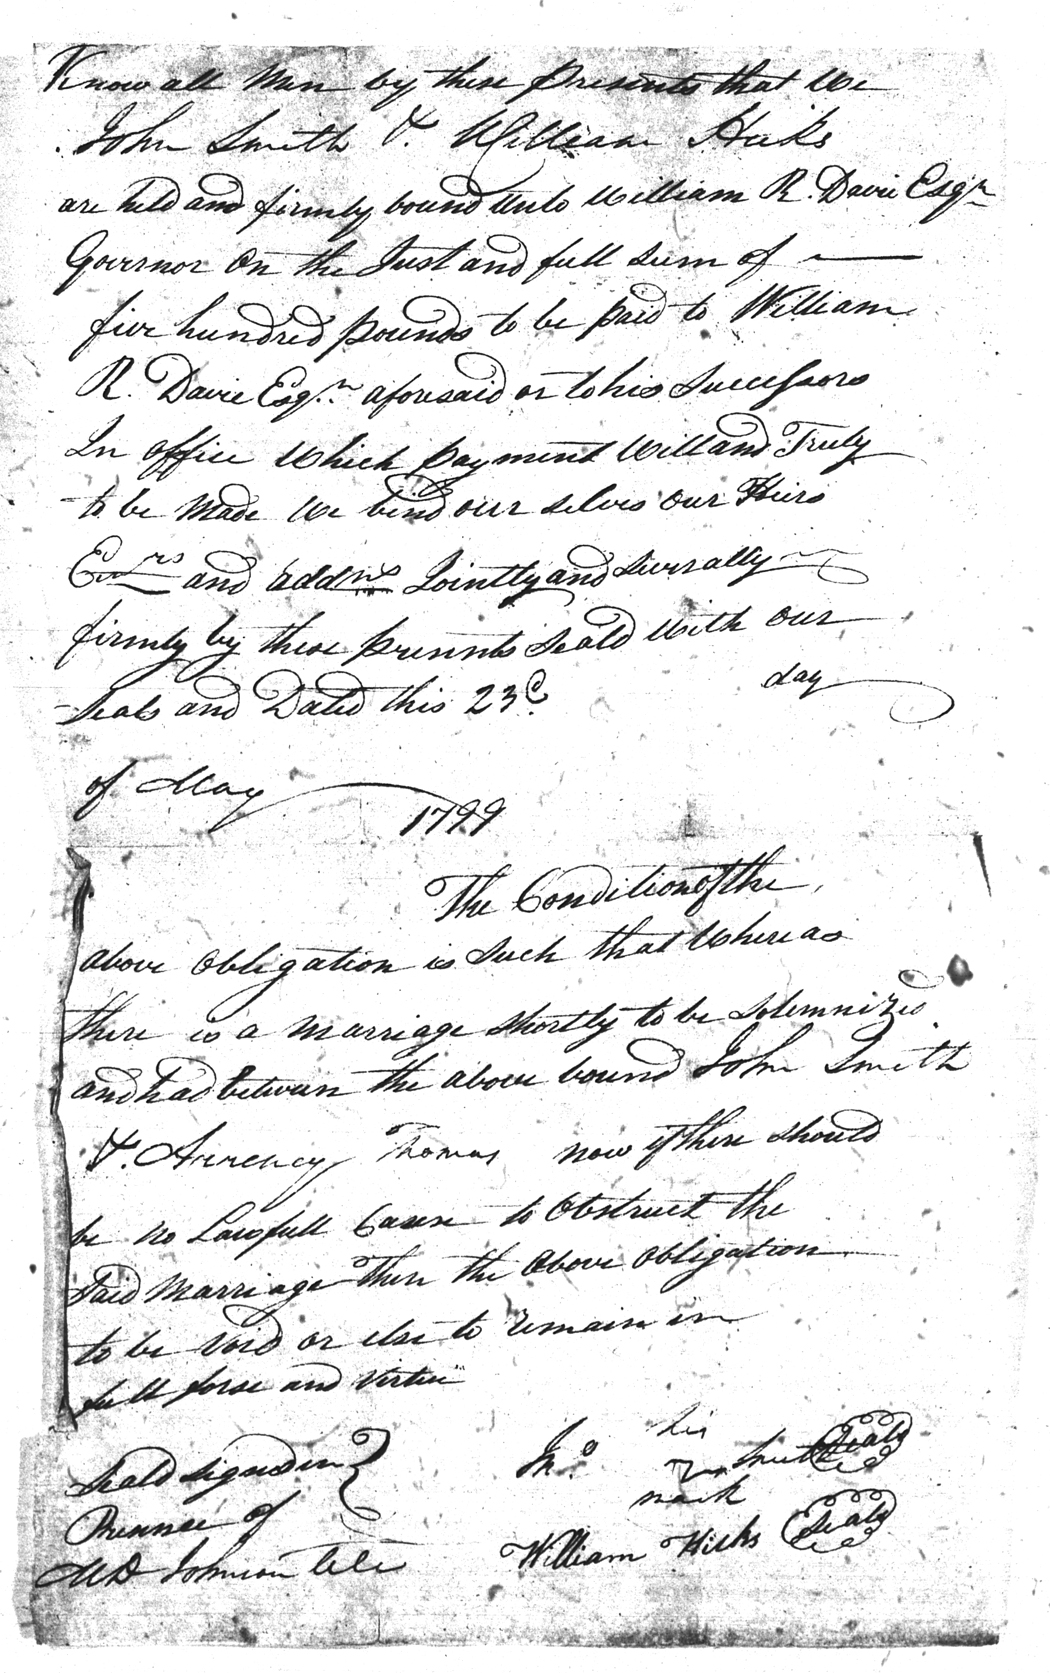 Know all Men by these presents that We
John Smith & William Hicks
are held and firmly bound unto William R. Davie Esqr
Governor on the Just and full sum of
five hundred pounds to be paid to William
R. Davie Esqr aforesaid or to his Successors
In office which payment Well and Truly
to be Made We bind our selves our Heirs
Exrs and addms Jointly and severally
firmly by these presents Seald with our
Seals and Dated this 23d day
of May 1799
The Condition of the
above obligation is Such that Whereas
there is a marriage shortly to be solemnized
and had between the above bound John Smith
& Arrency Thomas now if there should
be no Lawfull Cause to obstruct the
Said Marriage Then the above obligation
to be void or else to remain in
full forse and virtue
Seald signed in
Presence of
MD Johnson
Jno his Smith Seal
mark
William Hicks Seal